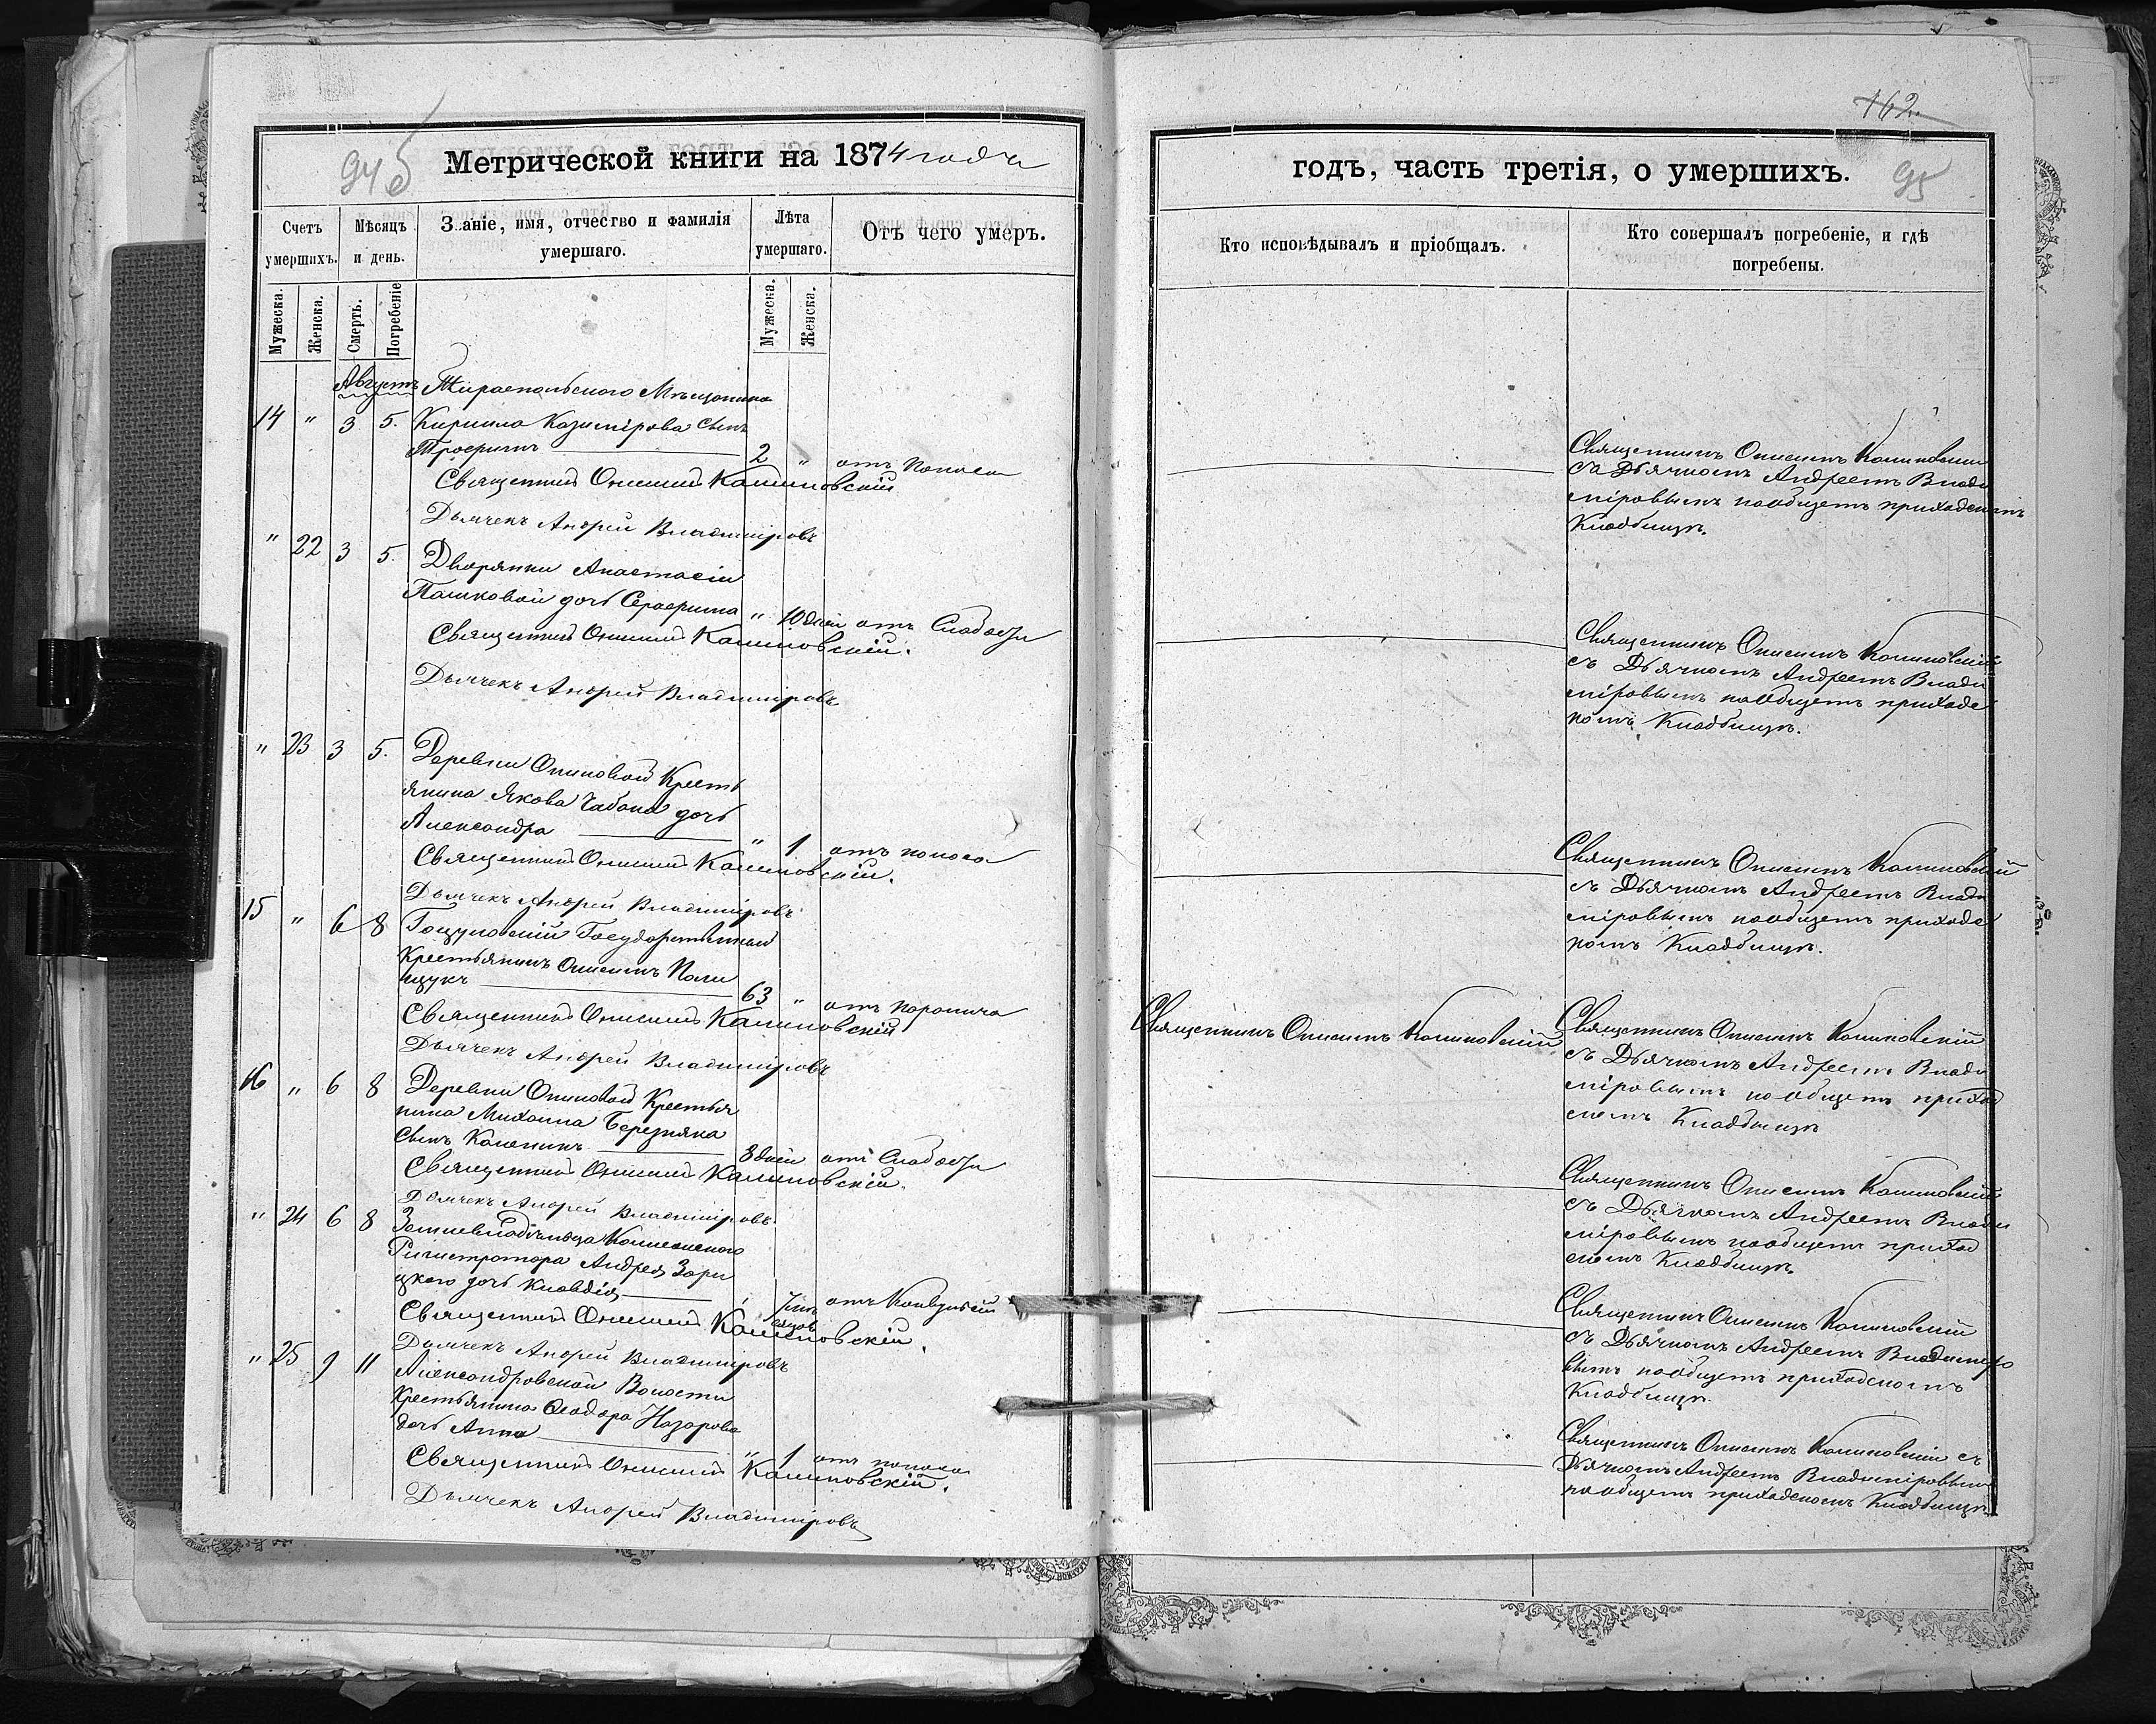 94б
Метрической книги на 1874 года
Счетъ умершихъ.
Мѣсяцъ и день.
Званіе, имя, отчество и фамилія умершаго.
Лѣта умершаго.
Отъ чего умеръ.
Мужеска.
Женска.
Смерть.
Погребеніе
Мужеска.
Женска.
Августъ Тираспольского Мѣщанина
14 " 3 5. Кирилла Казимірова сынъ
Трофимъ 2 " отъ поноса
Священникъ Онисимъ Калиновскій
Дьячекъ Андрей Владиміровъ
" 22 3 5. Дворянки Анастасіи
Пашковой дочь Серафима " 10 дней отъ Слабости
Священникъ Онисимъ Калиновскій.
Дьячекъ Андрей Владиміровъ
" 23 3 5. Деревни Осиповой Кресть
янина Якова Чабана дочь
Александра " 1 отъ поноса
Священникъ Онисимъ Калиновскій.
Дьячекъ Андрей Владиміровъ
15 " 6 8 Государственный
Крестьянинъ Онисимъ Поли
щукъ 63 " отъ паралича
Священникъ Онисимъ Калиновскій
Дьячекъ Андрей Владиміровъ
16 " 6 8 Деревни Осиповой Крестья
нина Михаила Березняка
сынъ 8 дней отъ Слабости
Священникъ Онисимъ Калиновскій.
Дьячекъ Андрей Владиміровъ
" 24 6 8 Землевладѣльца Коллежского
Регистратора Андрея Зари
цкого дочь Клавдія
Священникъ Онисимъ Калиновскій.
Дьячекъ Андрей Владиміровъ
" 25 9 11 Александровской Волости
Крестьянина Феодора Назарова
дочь Анна " 1 отъ поноса
Священникъ Онисимъ Калиновскій.
Дьячекъ Андрей Владиміровъ
162.
годъ, часть третія, о умершихъ.
95
Кто исповѣдывалъ и пріобщалъ.
Кто совершалъ погребеніе, и гдѣ погребены.
Священникъ Онисимъ Калиновскій
съ Дьячкомъ Андреемъ Влади
міровымъ наобщемъ приходскомъ
Кладбищѣ.
Священникъ Онисимъ Калиновскій
съ Дьячкомъ Андреемъ Влади
міровымъ наобщемъ приходс
комъ Кладбищѣ.
Священникъ Онисимъ Калиновскій
съ Дьячкомъ Андреемъ Влади
міровымъ наобщемъ приходс
комъ Кладбищѣ.
Священникъ Онисимъ Калиновскій
Священникъ Онисимъ Калиновскій
съ Дьячкомъ Андреемъ Влади
міровымъ наобщемъ приход
скомъ Кладбищѣ
Священникъ Онисимъ Калиновскій
съ Дьячкомъ Андреемъ Влади
міровымъ наобщемъ приход
скомъ Кладбищѣ
Священникъ Онисимъ Калиновскій
съ Дьячкомъ Андреемъ Владиміро
вымъ наобщемъ приходскомъ
Кладбищѣ.
Священникъ Онисимъ Калиновскій съ
Дьячкомъ Андреемъ Владиміровымъ
наобщемъ приходскомъ Кладбищѣ